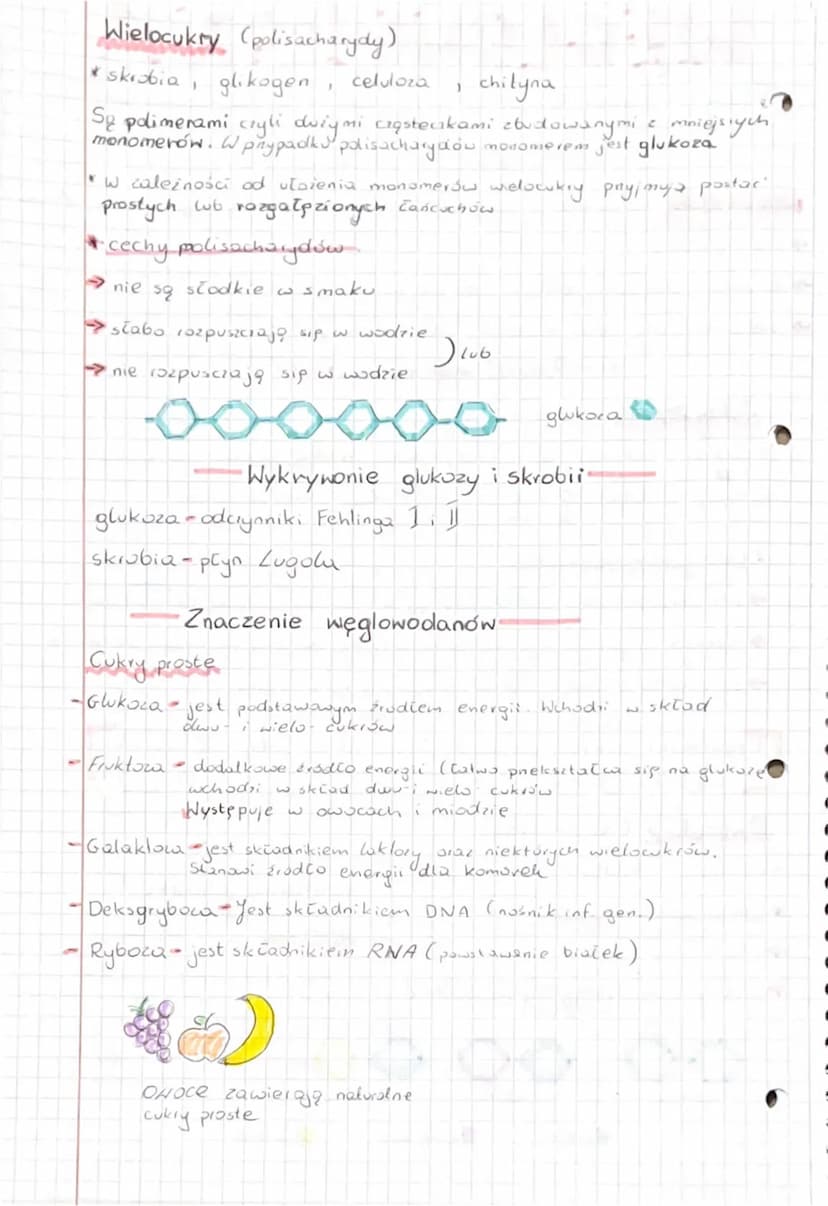 Wielocukry (polisacharydy)
* skrobia, glikogen, celuloza, chityna
Są polimerami czyli dużymi cząsteczkami zbudowanymi z mniejszych
monomerów. W przypadku polisacharydów monomerem jest glukoza
* W zależności od ułożenia monomerów wielocukry przyjmują postać
prostych lub rozgałęzionych łańcuchów
* cechy polisacharydów
→ nie są słodkie w smaku
→ słabo rozpuszczają się w wodzie
) lub
→ nie rozpuszczają się w wodzie
glukoza
Wykrywanie glukozy i skrobii
glukoza - odczynniki Fehlinga I i II
skrobia - płyn Lugola
Znaczenie węglowodanów
Cukry proste
- Glukoza - jest podstawowym źródłem energii. Wchodzi w skład
dwu- i wielo- cukrów
- Fruktoza - dodatkowe źródło energii (łatwo przekształca się na glukozę
wchodzi w skład dwu- i wielo cukrów
Występuje w owocach i miodzie
- Galaktoza - jest składnikiem laktozy oraz niektórych wielocukrów.
Stanowi źródło energii dla komórek
- Deksgryboza - Jest składnikiem DNA (nośnik inf. gen.)
- Ryboza - jest składnikiem RNA (powstawanie białek)
Owoce zawierają naturalne
cukry proste